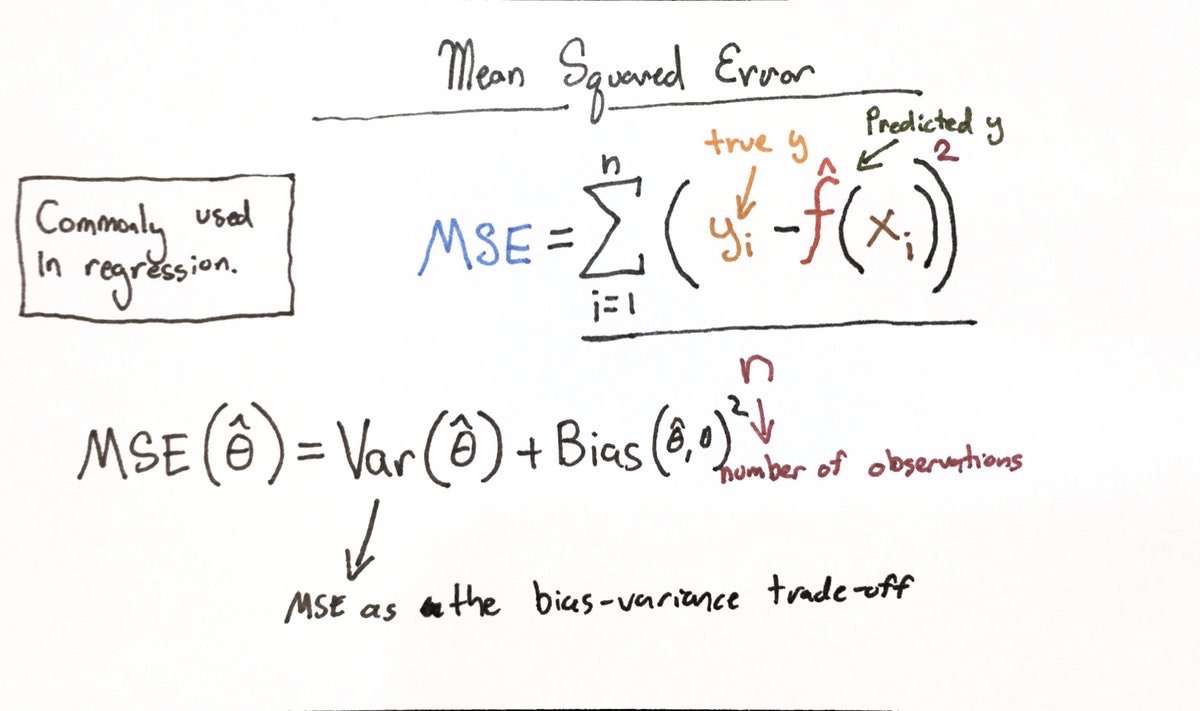 Mean Squared Error
Commonly used
In regression.
true y
Predicted y
MSE = n ∑ i=1 ( yᵢ - f̂(xᵢ))²
n
number of observations
MSE(θ̂) = Var(θ̂) + Bias(θ̂, θ)²
MSE as the bias-variance trade-off